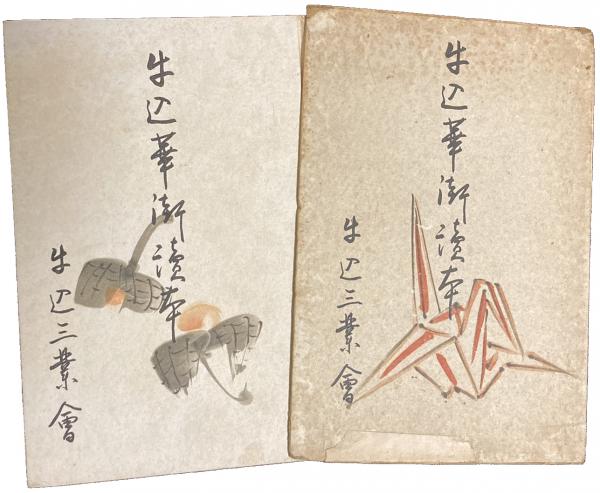 牛込華街讀本
牛込三業會
牛込華街讀本
牛込三業會